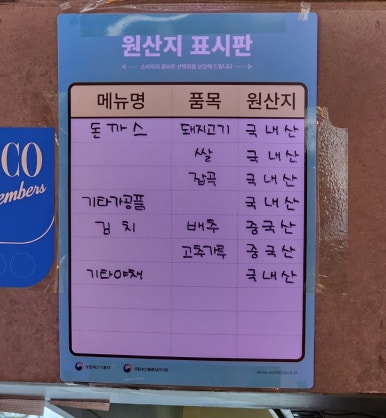 원산지 표시판
메뉴명 품목 원산지
돈까스 돼지고기 국내산
쌀 국내산
잡곡 국내산
기타가공품 국내산
김치 배추 중국산
고추가루 중국산
기타야채 국내산
CO
embers